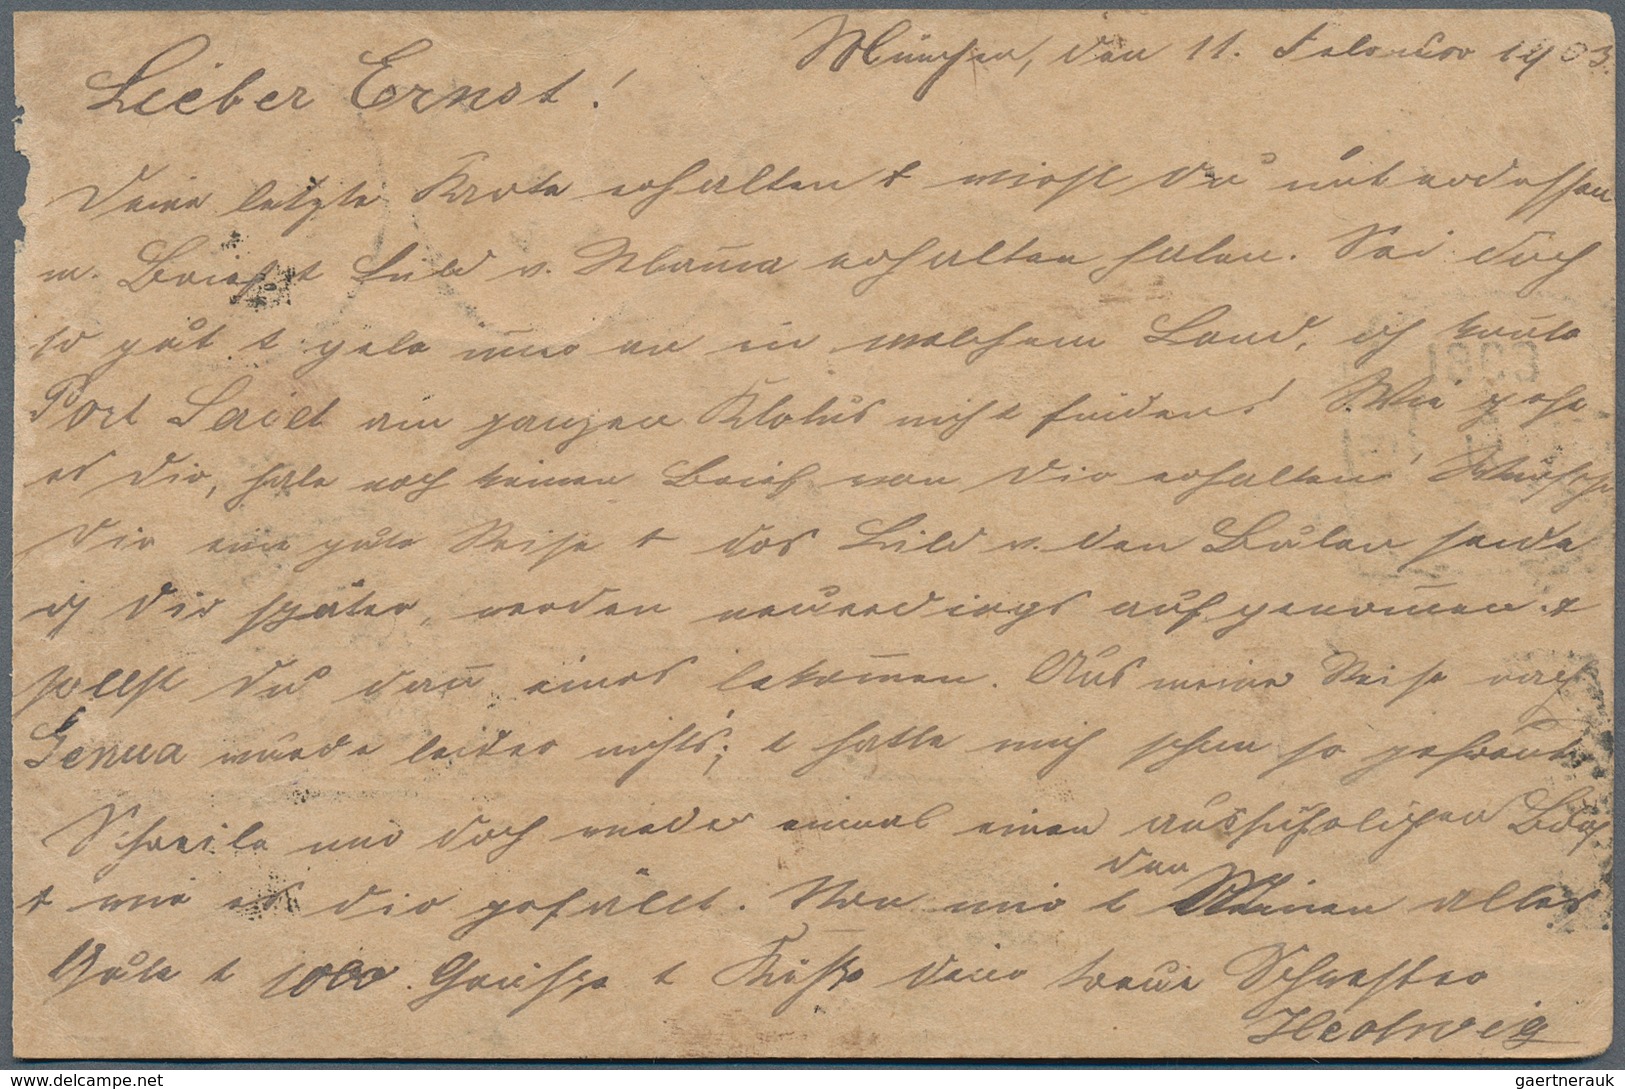 München, den 11. Februar 1903.
Lieber Ernst!
Deine letzte Karte erhalten & wirst Du unterdessen
m. Brief & Bild v. Mama erhalten haben. Sei doch
so gut & gebe immer an in welchem Land, ich konnte
Port Said am ganzen Globus nicht finden! Wie geht
es Dir, habe noch keinen Brief von Dir erhalten! Wünsche
Dir eine gute Reise & das Bild v. den Buben sende
ich Dir später, werden neuerdings aufgenommen &
sollst Du dann eines bekommen. Aus meiner Reise nach
Genua wurde leider nichts; & hatte mich schon so gefreut.
Schreibe mir doch wieder einmal einen ausführlichen Brief
& wie es dir gefällt. Von mir & den Meinen alles
Gute & 1000 Grüsse & Küsse Deine treue Schwester
Hedwig
1903
delcampe.net
gaertnerauk